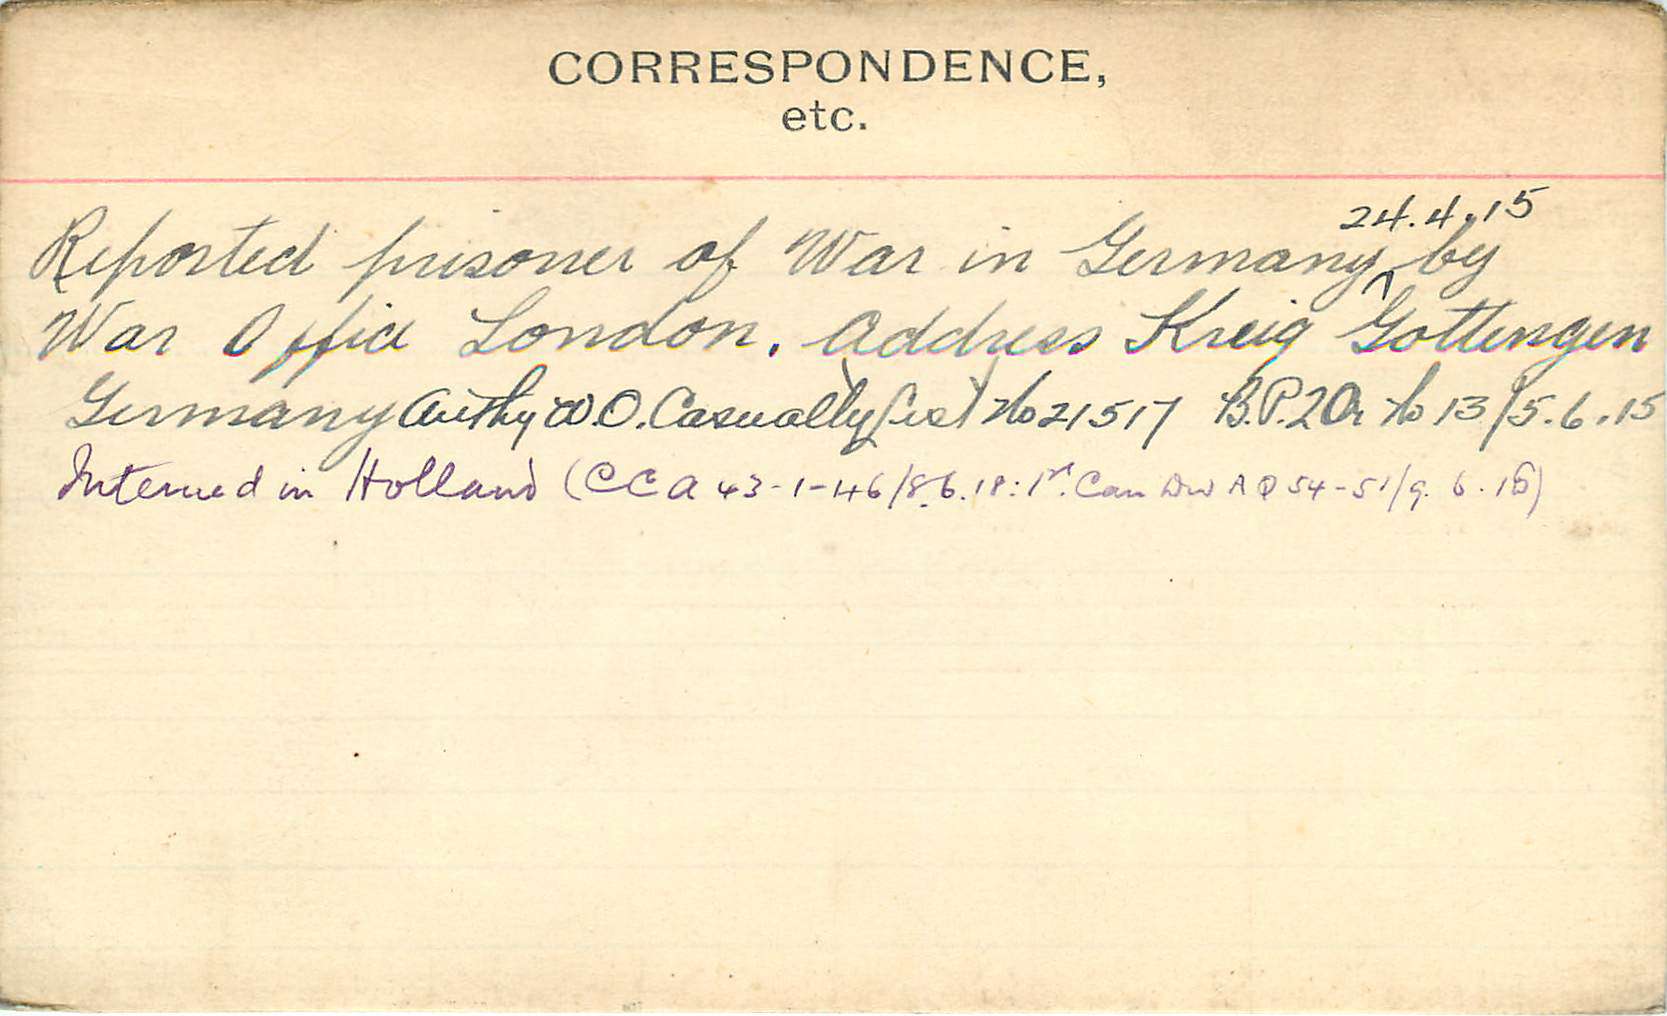 CORRESPONDENCE,
etc.
24.4.15
Reported prisoner of War in Germany ^ by
War Office London. Address Kreig Gottengen
Germany Authy W.O. Casualty List No 21517 B.P.2 Or No 13/5.6.15
Interned in Holland (CCA 43-1-46/8.6.18: 1st. Can Div A Q 54-51/9.6.18)